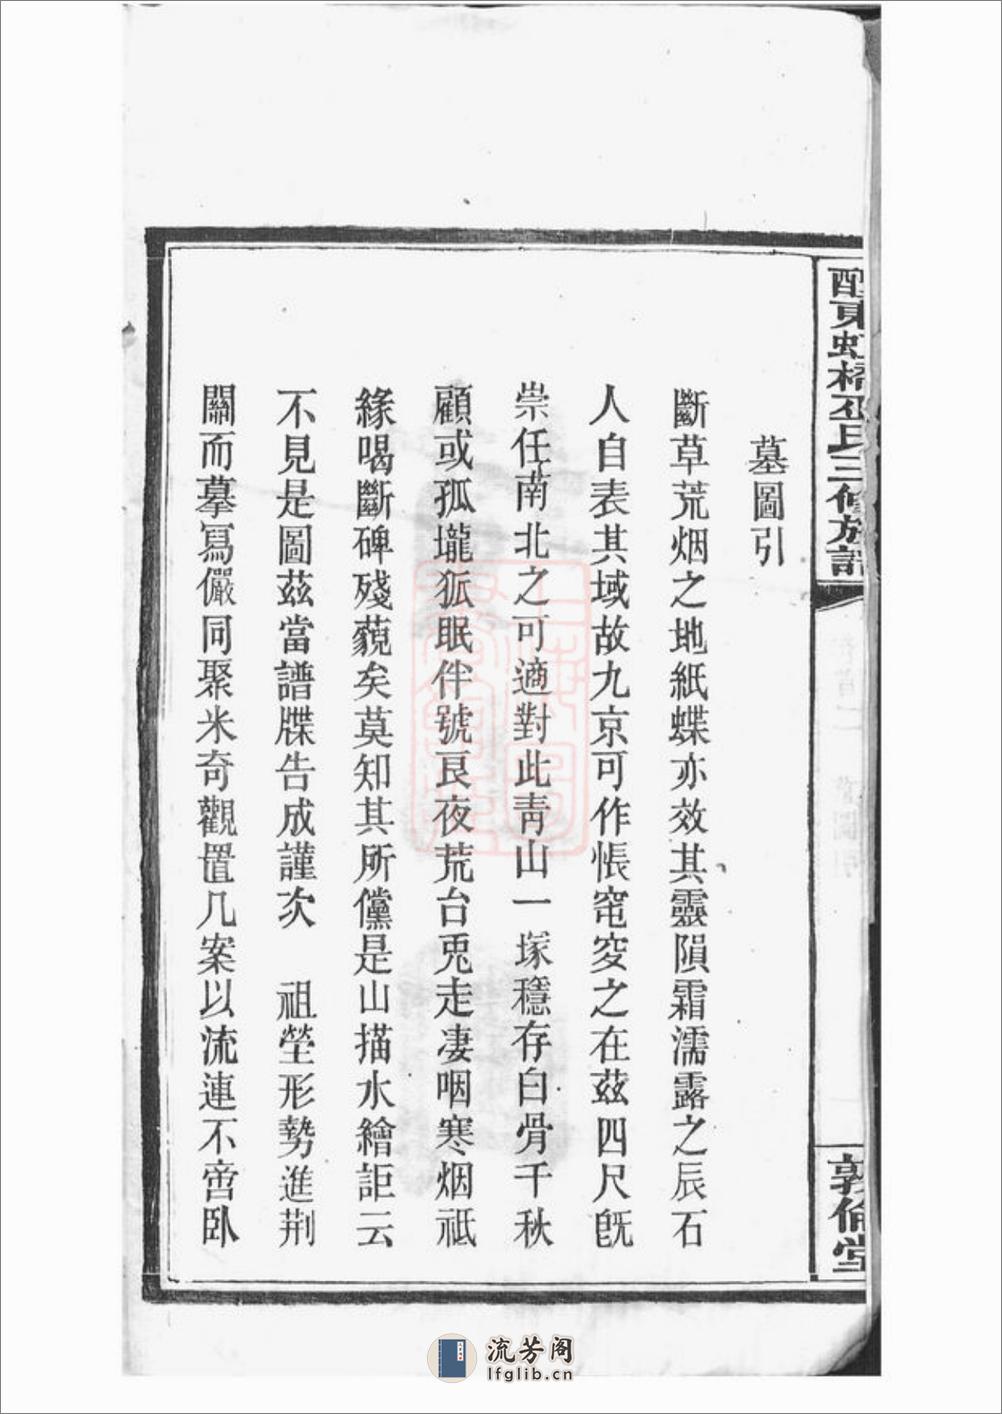 醴東虹橋丕氏三修族譜
敦倫堂
墓圖引
斷草荒烟之地紙蝶亦效其靈隕霜濡露之辰石
人自表其域故九京可作悵窀穸之在茲四尺旣
崇任南北之可適對此靑山一塚穩存白骨千秋
顧或孤壠狐眠伴號良夜荒台兎走凄咽寒烟祗
緣喝斷碑殘藐矣莫知其所儻是山描水繪詎云
不見是圖茲當譜牒告成謹次　祖塋形勢進荆
關而摹冩儼同聚米奇觀置几案以流連不啻臥
流芳阁
lfglib.cn